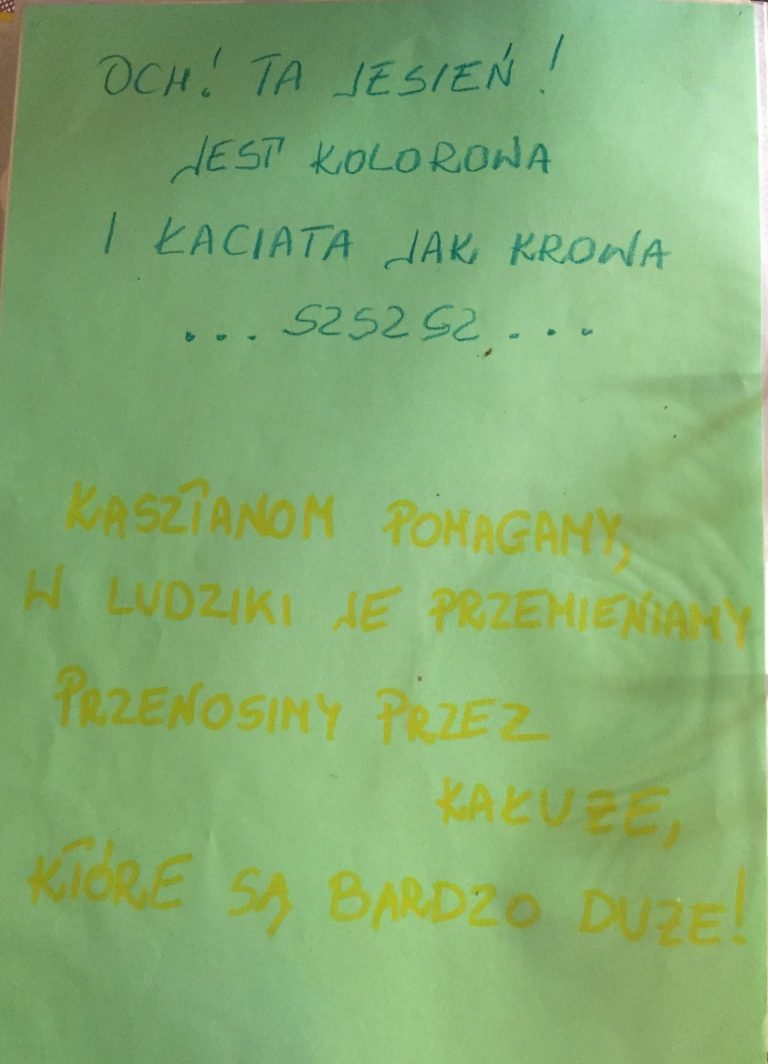 OCH! TA JESIEŃ!
JEST KOLOROWA
I ŁACIATA JAK KROWA
... SZSZSZ ...
KASZTANOM POMAGAMY,
W LUDZIKI JE PRZEMIENIAMY
PRZENOSIMY PRZEZ
KAŁUŻE,
KTÓRE SĄ BARDZO DUŻE!